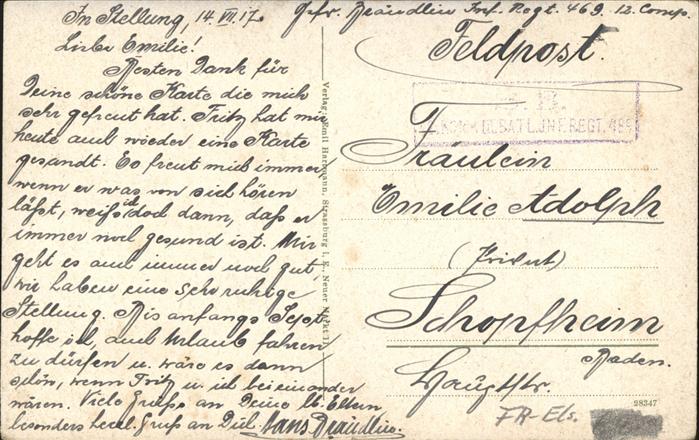 In Stellung, 14.VII.17.
Gefr. Brändlin Inf. Regt. 469. 12. Comp.
Liebe Emilie!
Besten Dank für
Deine schöne Karte die mich
sehr gefreut hat. Fritz hat mir
heute auch wieder eine Karte
gesandt. Es freut mich immer
wenn er was von sich hören
läßt, weiß ich doch dann, daß er
immer noch gesund ist. Mir
geht es auch immer noch gut,
wir haben eine sehr ruhige
Stellung. Bis anfangs Sept.
hoffe ich, auch Urlaub fahren
zu dürfen u. wäre es dann
schön, wenn Fritz u. ich beieinander
wären. Viele Grüße an Deine lb. Eltern
besonders herzl. Gruß an Dich Hans Brändlin.
Verlag: Emil Hartmann, Strassburg i. E., Neuer Markt 11
Feldpost.
BATL. INF. REGT. 469
Fräulein
Emilie Adolph
(Privat)
Schopfheim
Baden.
Hauptstr.
28347
FR-Els.